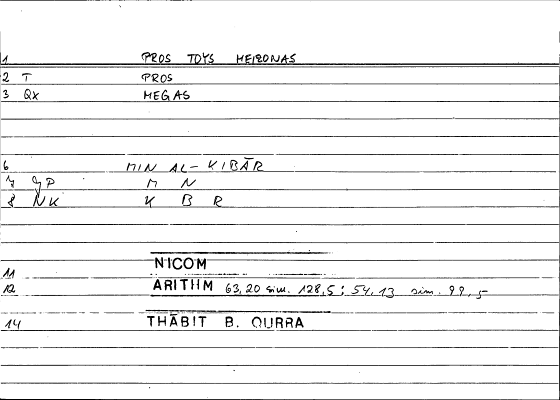 1 PROS TOYS MEIZONAS
2 T PROS
3 Qx MEGAS
6 MIN AL-KIBĀR
7 JP M N
8 NK K B R
11 NICOM
12 ARITHM 63,20 sim. 128,5; 54,13 sim. 99,5
14 THĀBIT B. QURRA